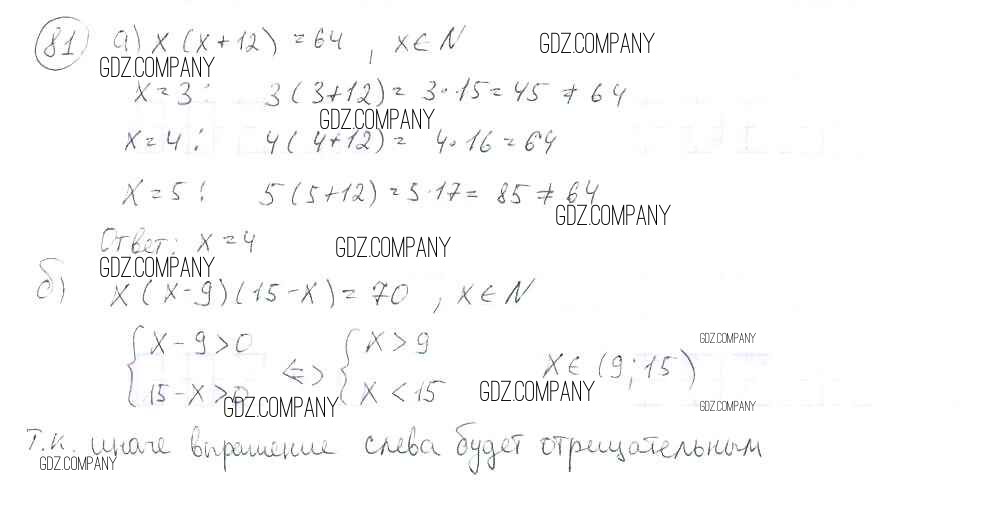 81) а) x (x+12) = 64 , x ∈ N GDZ.COMPANY
GDZ.COMPANY
x = 3 : 3 (3+12) = 3·15 = 45 ≠ 64
GDZ.COMPANY
x = 4 : 4 (4+12) = 4·16 = 64
x = 5 : 5 (5+12) = 5·17 = 85 ≠ 64
GDZ.COMPANY
Ответ: x = 4 GDZ.COMPANY
GDZ.COMPANY
б) x (x-9) (15-x) = 70 , x ∈ N
{ x - 9 > 0 <=> { x > 9 x ∈ (9; 15) GDZ.COMPANY
15 - x > 0 x < 15 GDZ.COMPANY
GDZ.COMPANY GDZ.COMPANY
Т.к. иначе выражение слева будет отрицательным
GDZ.COMPANY